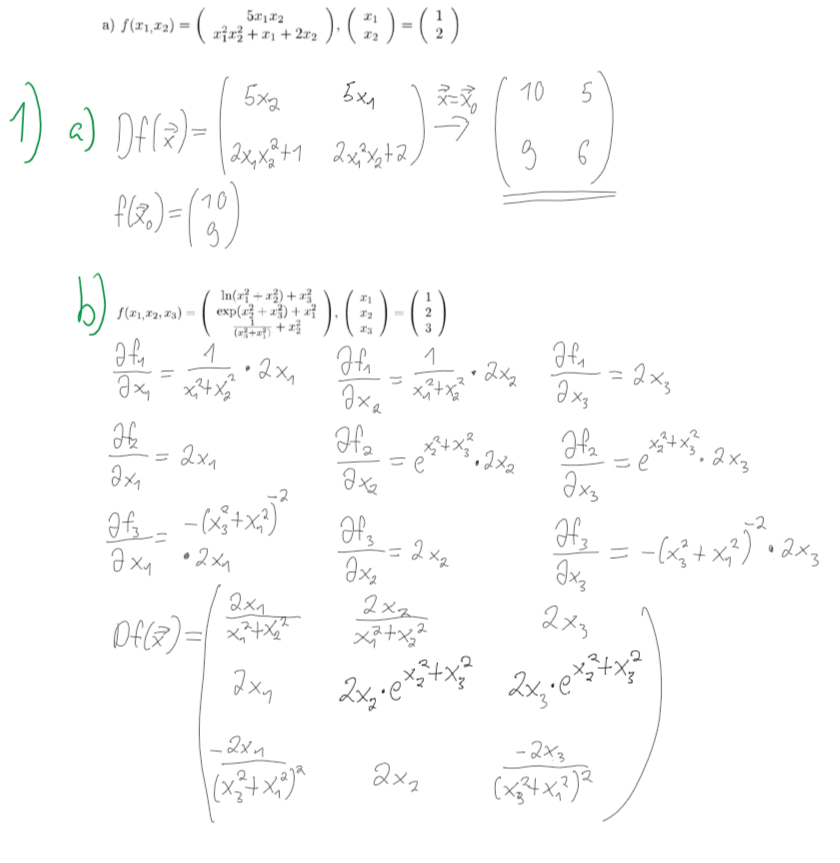 a) f(x₁,x₂) = ( 5x₁x₂ ; x₁²x₂² + x₁ + 2x₂ ), ( x₁ ; x₂ ) = ( 1 ; 2 )
1) a) Df(x⃗) = ( 5x₂ 5x₁ ; 2x₁x₂²+1 2x₁²x₂+2 ) x⃗=x⃗₀ → ( 10 5 ; 9 6 )
f(x⃗₀) = ( 10 ; 9 )
b) f(x₁,x₂,x₃) = ( ln(x₁² + x₂²) + x₃² ; exp(x₂² + x₃²) + x₁² ; 1/(x₃²+x₁²) + x₂² ), ( x₁ ; x₂ ; x₃ ) = ( 1 ; 2 ; 3 )
∂f₁/∂x₁ = 1/(x₁²+x₂²) · 2x₁ ∂f₁/∂x₂ = 1/(x₁²+x₂²) · 2x₂ ∂f₁/∂x₃ = 2x₃
∂f₂/∂x₁ = 2x₁ ∂f₂/∂x₂ = e^(x₂²+x₃²) · 2x₂ ∂f₂/∂x₃ = e^(x₂²+x₃²) · 2x₃
∂f₃/∂x₁ = -(x₃²+x₁²)⁻² · 2x₁ ∂f₃/∂x₂ = 2x₂ ∂f₃/∂x₃ = -(x₃²+x₁²)⁻² · 2x₃
Df(x⃗) = ( 2x₁/(x₁²+x₂²) 2x₂/(x₁²+x₂²) 2x₃
2x₁ 2x₂·e^(x₂²+x₃²) 2x₃·e^(x₂²+x₃²)
-2x₁/(x₃²+x₁²)² 2x₂ -2x₃/(x₃²+x₁²)² )